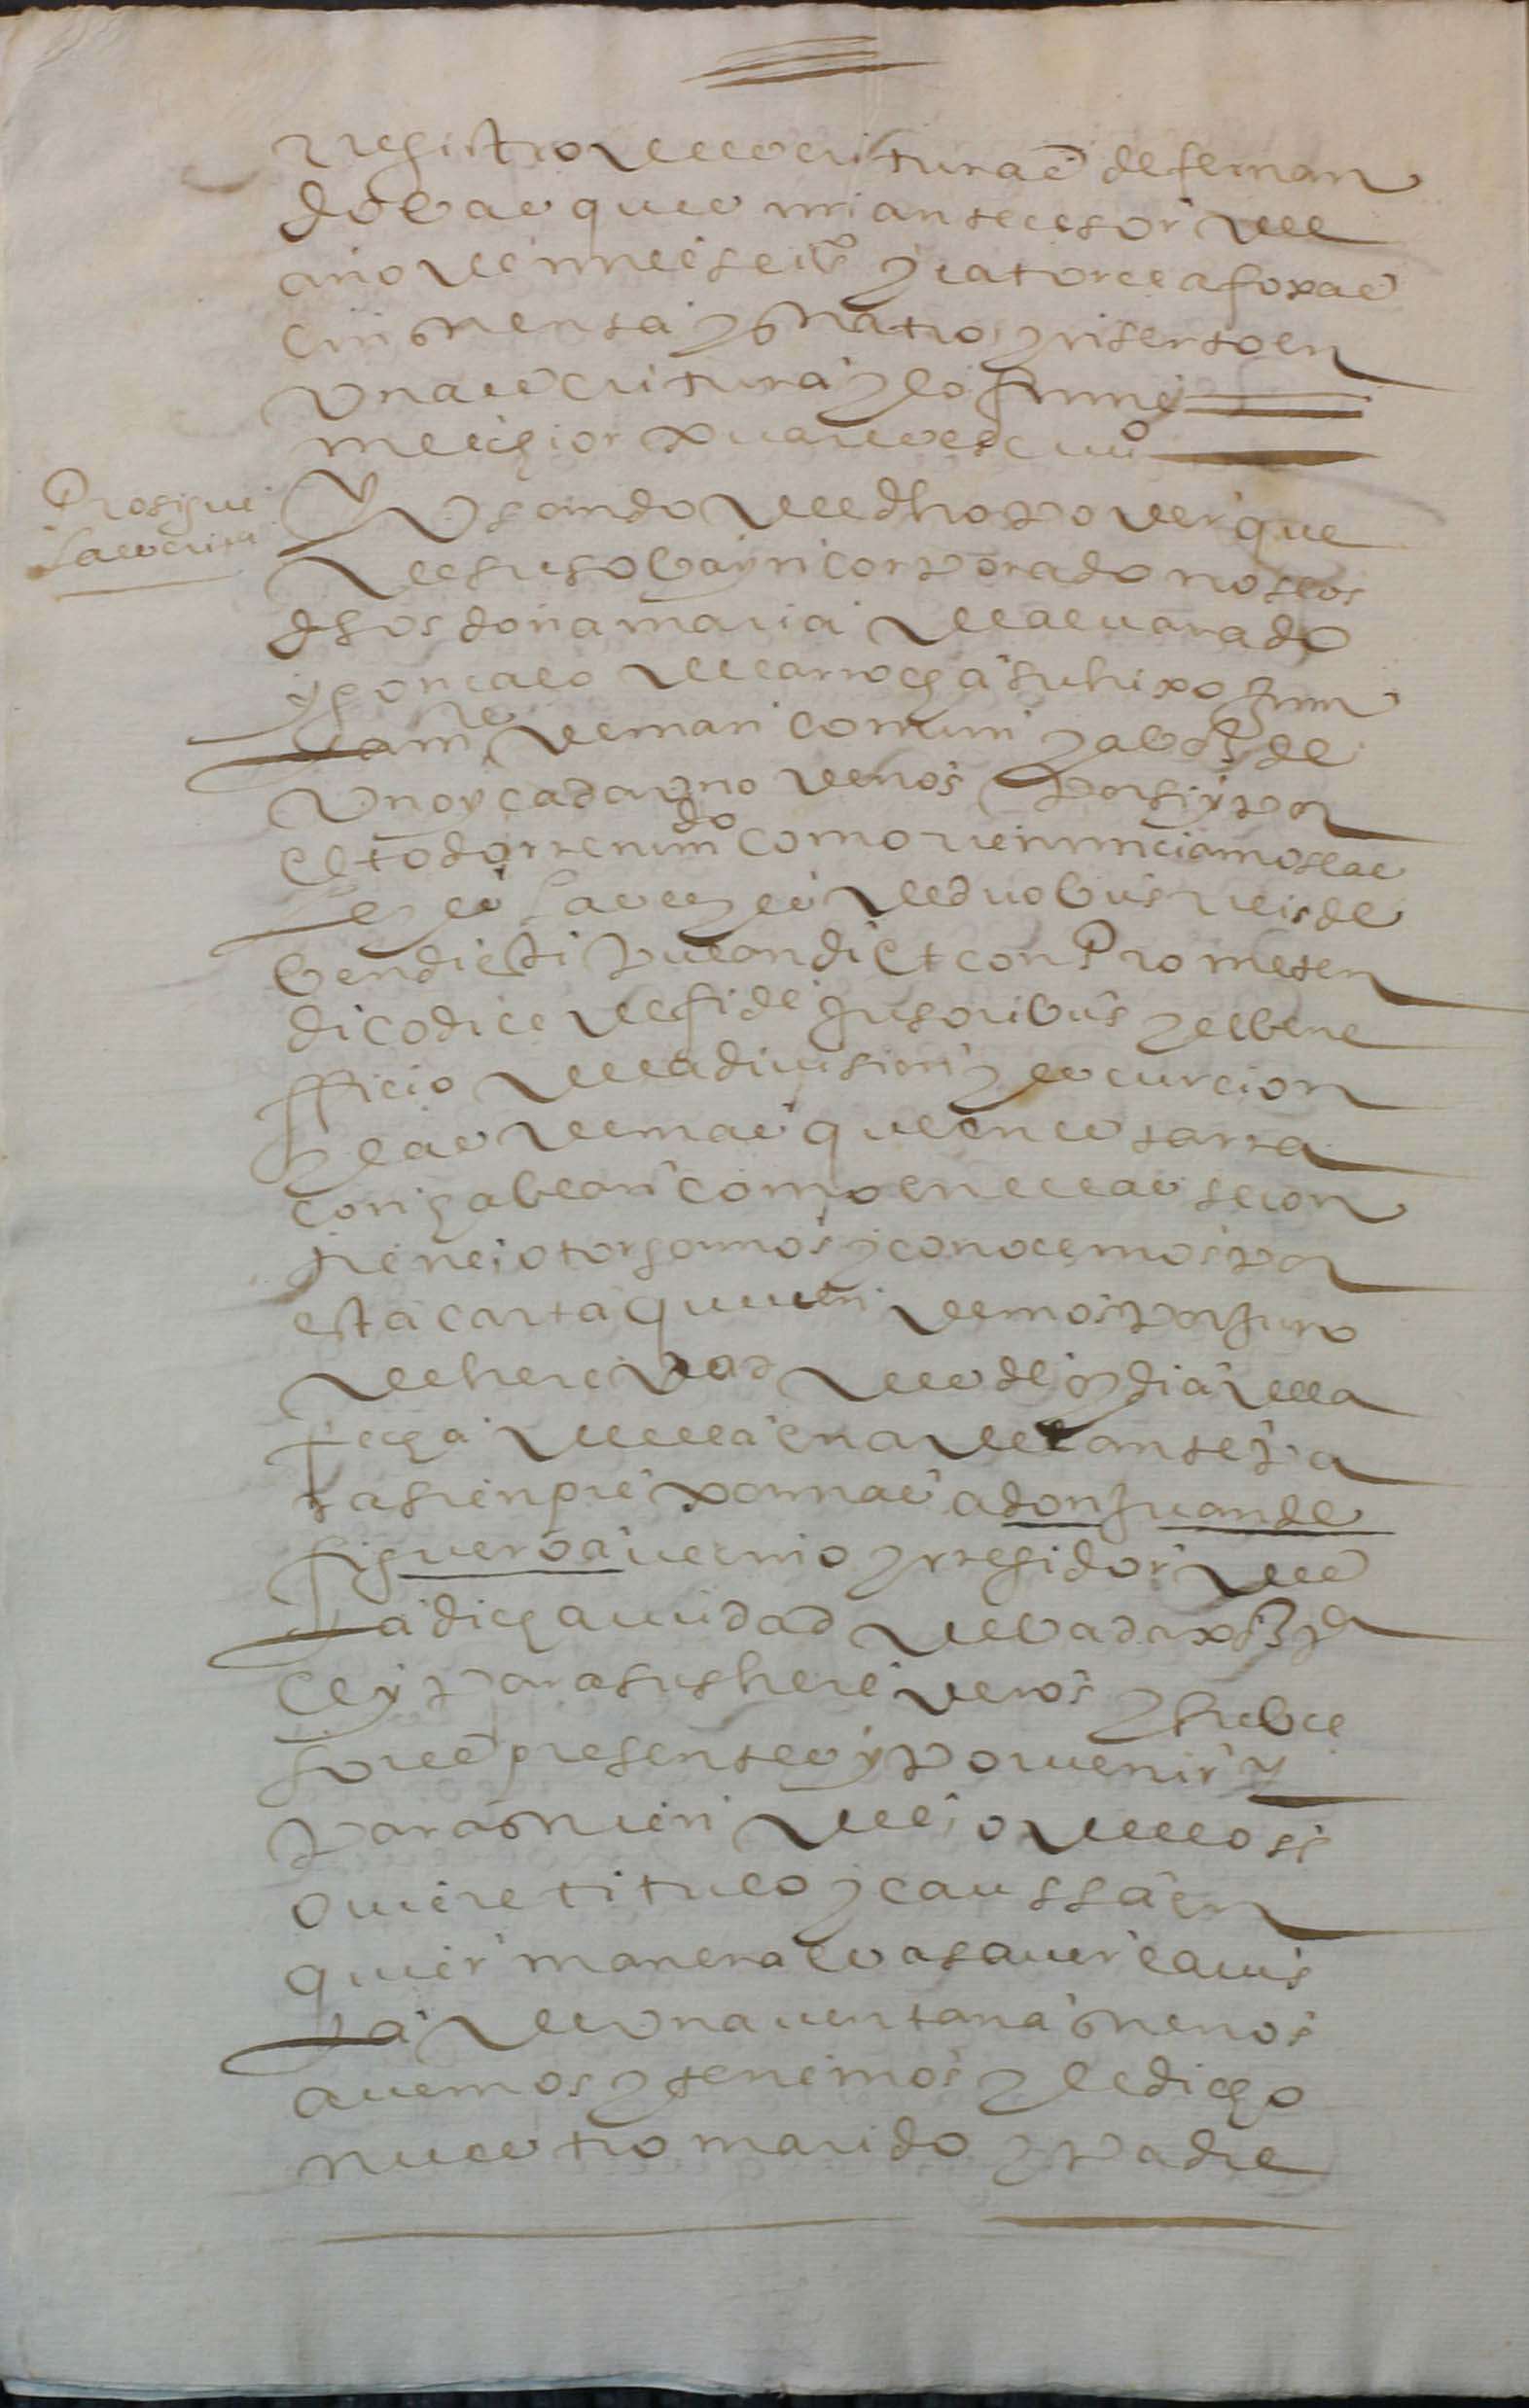 rregistro de escrituras de fernan
do basques mi antecesor del
año de mil seisº y catorce a foxas
cinquenta y quatro ynserto en
una escritura y lo firme
melchior xuares escnº
Prosigue
la escritu
Y usando del dho poder que
de suso ba yncorporado nos los
dhos doña maria de aluarado
y gonçalo de la rrocha su hixo jun
tamte de mancomun y a boz de
uno y cada uno de nos por si y por
el todo rrenundo como renunciamos las
leyes la ley de duobus rreis de
bendi et con Prometen
di codice de fide jusoribus y el bene
fficio de la diuision y escursion
y las demas que en esta rra
çon hablan como en ellas se con
tiene otorgamos y conocemos por
esta carta que uen demos por juro
de heredad desde oy dia de la
fecha della en adelante pa
ra sienpre xamas a don juan de
figueroa uecino y rregidor des
ta dicha ciudad de badaxoz pa
el y para sus herederos y subce
sores presentes y por uenir y
para quien del o dellos
ouiere titulo y caussa en
quier manera es a sauer la uis
ta de una uentana que nos
auemos y tenemos y el dicho
nuestro marido y padre